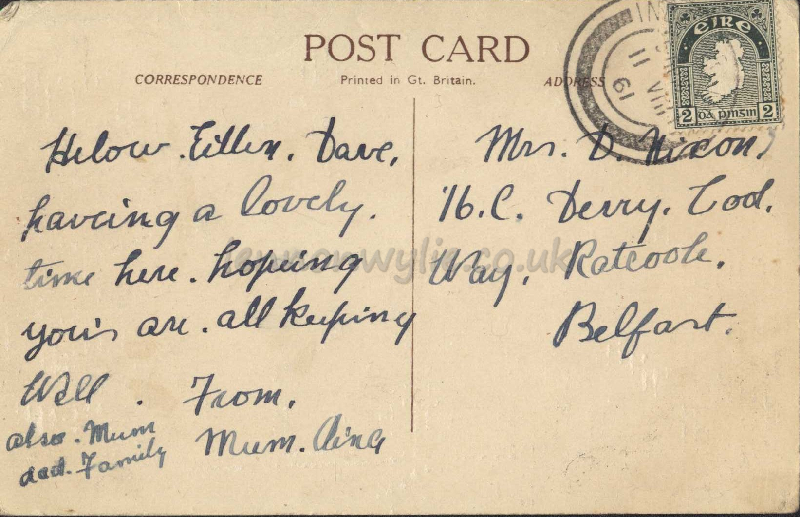 POST CARD
CORRESPONDENCE
Printed in Gt. Britain.
ADDRESS
ÉIRE
2 2
11 VIII 61
Helow. Eillen. Dave.
haveing a lovely.
time here. hopeing
your's are. all keeping
Well. From.
Mum.
also. Mum
dad. Family
Mrs. D. Nixon,
16.C. Derry. Cod.
Way. Ratcoole.
Belfast.
lennonwylie.co.uk